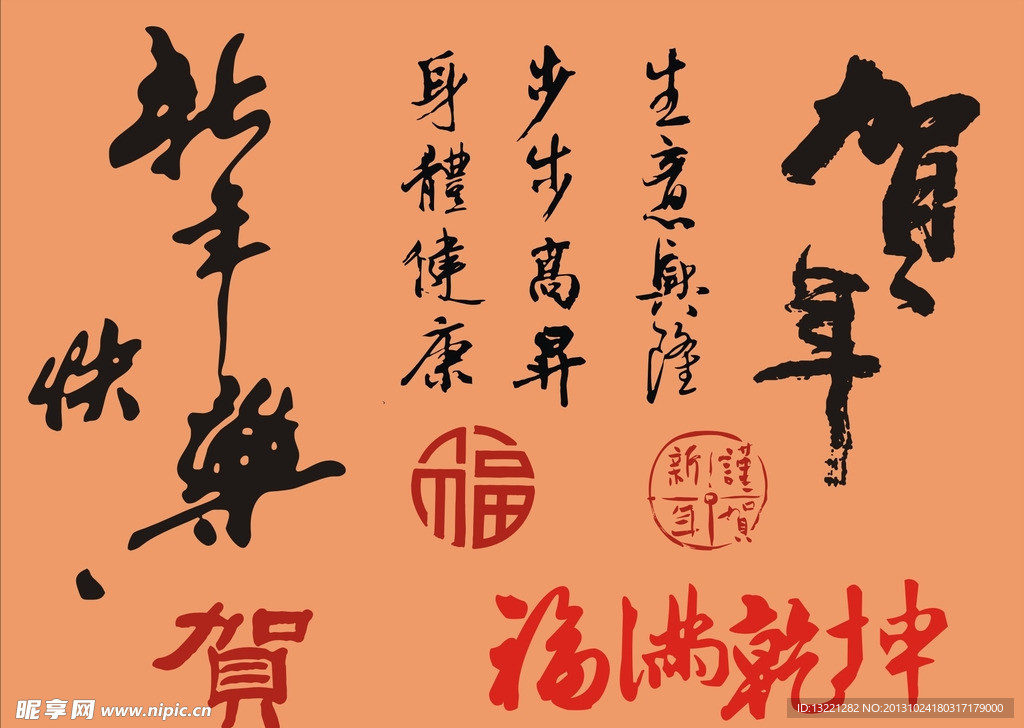 賀年
生意興隆
步步高昇
身體健康
新年快樂
福
謹賀新年
賀
福滿乾坤
昵享网 www.nipic.cn
ID:13221282 NO:20131024180317179000